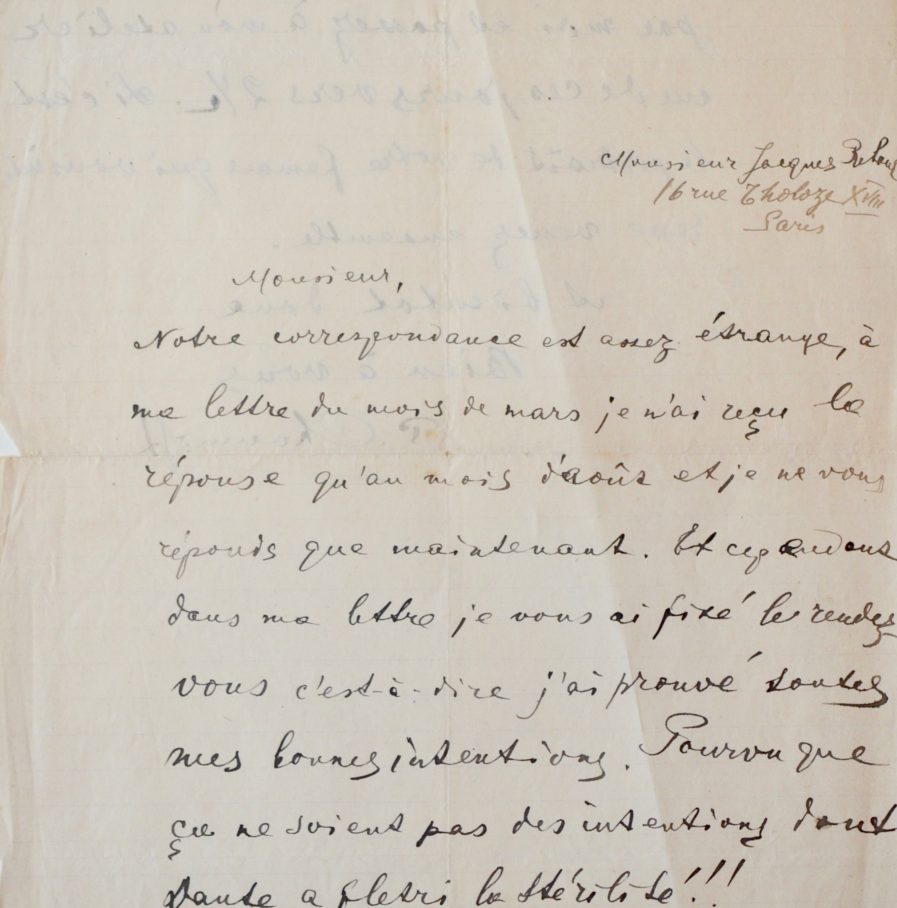 Monsieur Jacques
16 rue Tholozé XVIII
Paris
Monsieur,
Notre correspondance est assez étrange, à
ma lettre du mois de mars je n'ai reçu la
réponse qu'au mois d'août et je ne vous
réponds que maintenant. Et cependant
dans ma lettre je vous ai fixé le rendez-
vous c'est-à-dire j'ai prouvé toutes
mes bonnes intentions. Pourvu que
ça ne soient pas des intentions dont
Dante a fletri la stérilité!!!